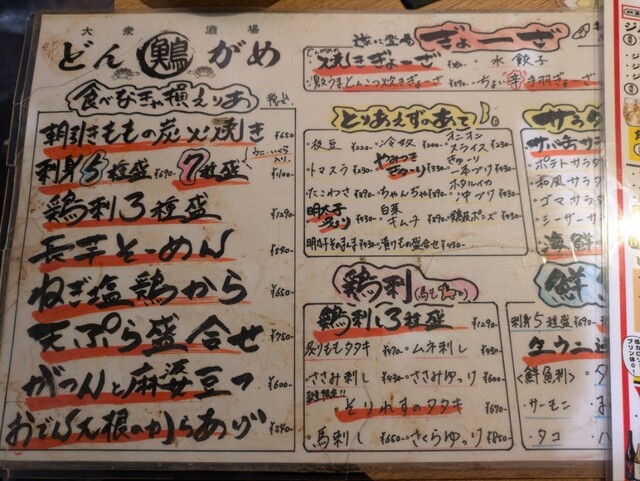 大衆酒場
どん鶏がめ
食べなきゃ損えりあ 税込
朝引きももの炭火焼き ¥650
刺身5種盛 ¥690- 7種盛 ウニ・いくら入り ¥1,100
鶏刺3種盛 ¥1290
長芋そーめん ¥540-
ねぎ塩鶏から ¥650-
天ぷら盛合せ ¥750
がつんと麻婆豆フ ¥600-
おでん大根のからあげ ¥540-
ぎょーざ
焼きぎょーざ 水餃子
とりあえずのあて
・枝豆 ¥220- ・冷奴 ¥220- ・オニオンスライス ¥230-
・トマスラ ¥230 やみつききゅーり ¥330 きゅーり一本づけ ¥330
・たこわさ ¥390- ・ちゃんぢゃ ¥390- ・ホタルイカ沖づけ ¥390-
明太子 ¥330 ・白菜キムチ ¥390 ・鶏皮ポンズ ¥430-
・漬けもの盛合せ ¥430-
サラダ
サバ缶サラ
・ポテトサラダ
・和風サラダ
・ゴマサラダ
・シーザーサ
海鮮
鶏刺
鶏刺し3種盛 ¥1290
炙りももタタキ ¥690 ・ムネ刺し ¥430
・ささみ刺し ¥430 ・ささみゆっけ ¥600
そりれすのタタキ ¥690
・馬刺し ¥650- ・さくらゆっけ ¥850
鮮
刺身5種盛 ¥690
生ウニ
<鮮魚刺>
・サーモン
・タコ